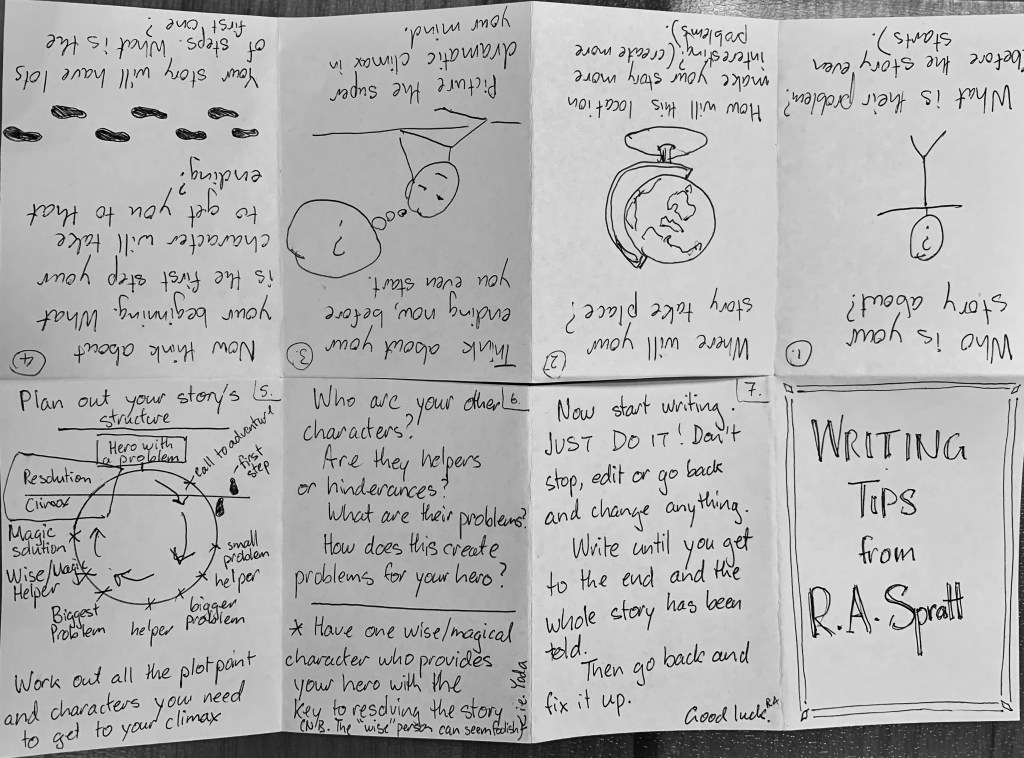 WRITING
TIPS
from
R.A. Spratt
1.
Who is your
story about?
?
What is their problem?
(before the story even
starts).
2
Where will your
story take place?
How will this location
make your story more
interesting? (create more
problems).
3
Think about your
ending now, before
you even start.
?
Picture the super
dramatic climax in
your mind.
4
Now think about
your beginning. What
is the first step your
character will take
to get you to that
ending?
Your story will have lots
of steps. What is the
first one?
5.
Plan out your story's
structure
Hero with
a problem
call to adventure
first
step
small
problem
helper
bigger
problem
helper
Biggest
Problem
Wise/Magic
Helper
Magic
solution
Climax
Resolution
Work out all the plot point
and characters you need
to get to your climax
6.
Who are your other
characters?
Are they helpers
or hinderances?
What are their problems?
How does this create
problems for your hero?
* Have one wise/magical
character who provides
your hero with the
key to resolving the story
(N.B. The "wise" person can seem foolish)
i.e. Yoda
7.
Now start writing.
JUST DO IT! Don't
stop, edit or go back
and change anything.
Write until you get
to the end and the
whole story has been
told.
Then go back and
fix it up.
Good luck. RA